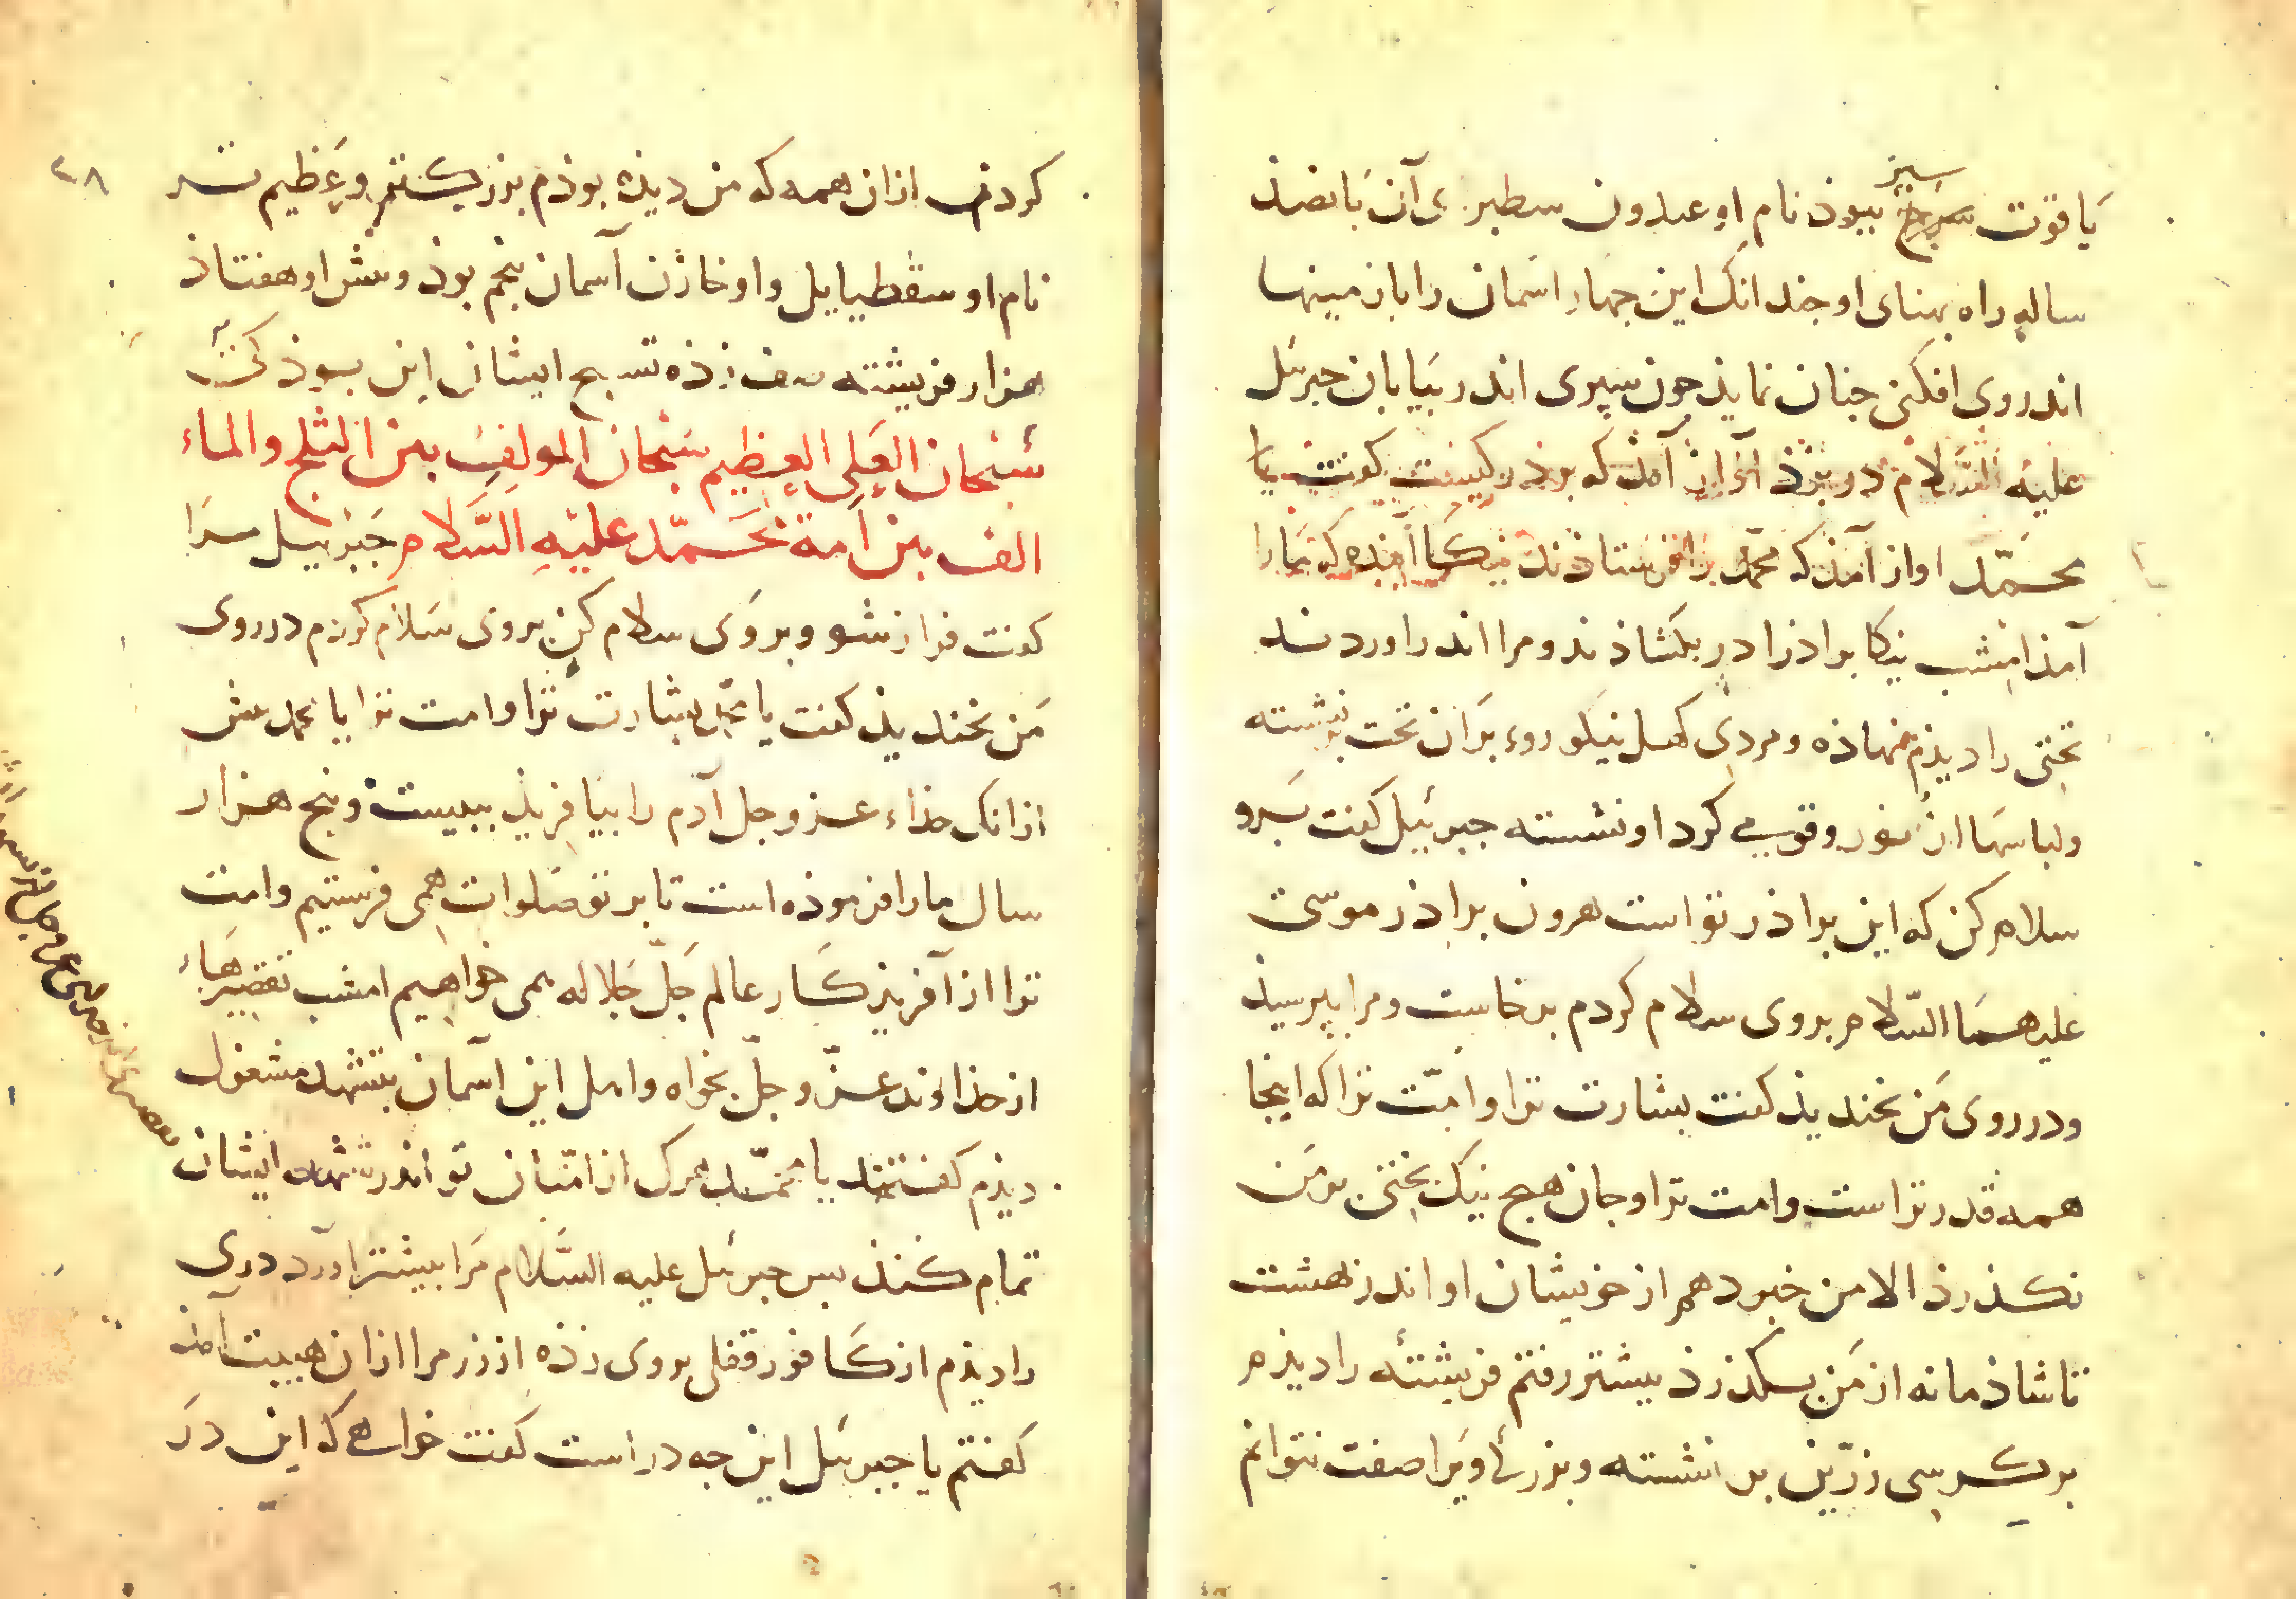 یاقوت سبز ببوذ نام او عبدون سطبری آن بانصذ
ساله راه بهنای او جندانک این جهار اسمان را با زمینها
اندر وی افکنی جنان نمایذ جون سپری اندر بیابان جبرئل
علیه السّلام در بزذ آواز آمذ که بوذ کیست کفت یا
محمّد اواز آمذ که محمّد را فرستاذند نیکا آینده که ما را
آمذ امشب نیکا براذرا در بکشاذند و مرا اندر اوردند
تختی را دیذم نهاذه و مردی کهل نیکوروء بر ان تخت نشسته
ولباسها از نور وقومی کرد او نشسته جبرئیل کفت برو
سلام کن که این براذر تو است هرون براذر موسی
علیهما السّلام بروی سلام کردم برخاست و مرا بپرسیذ
ودر روی من بخندیذ کفت بشارت ترا و امّت ترا که اینجا
همه قدر تراست وامت ترا وجان هیج نیک بختی بر من
نکذرذ الا من خبود هم از خویشان او اندر بهشت
تا شاذمانه از من بکذرذ بیشتر رفتم فریشتهٔ را دیذم
بر کرسی زرّین بر نشسته وبزرکی ویرا صفت نتوانم
۲۸
کردن از ان همه که من دیذه بوذم بزرکتر وعظیم تر
نام او سقطیاییل و او خازن آسمان بنجم بوذ وبیش او هفتاذ
هزار فریشته صف زذه تسبیح ایشان این بوذ کی
سُبْحان العَلِی العظیم سُبْحان المولِف بین الثلج والماء
الف بین اُمة مُحَمّد علیْهِ السَّلام جَبْریل مرا
کفت فراز شو وبر وی سلام کن بروی سَلام کردم در روی
من بخندیذ کفت یا محمّد بشارت ترا وامت ترا یا محمد بیش
از انک خذاء عزوجل آدم را بیافریذ ببیست وبنج هزار
سال ما را فرموذه است تا بر تو صلوات همی فرستیم وامت
ترا از آفریذکار عالم جَلّ جَلاله همی خواهیم امشب تقصیرهاء
از خذاوند عزّ وجلّ بخواه واهل این آسمان بتشهد مشغول
دیذم کفتند یا محمّد هرک از امّتان تو اندر تشهد ایشان
تمام کنذ بس جبرئل علیه السّلام مرا بیشتر آورد دری
را دیذم از کافور قفلی بر وی زذه از زر مرا از ان هیبت آمذ
کفتم یا جبرئل این جه در است کفت خواهی که این در